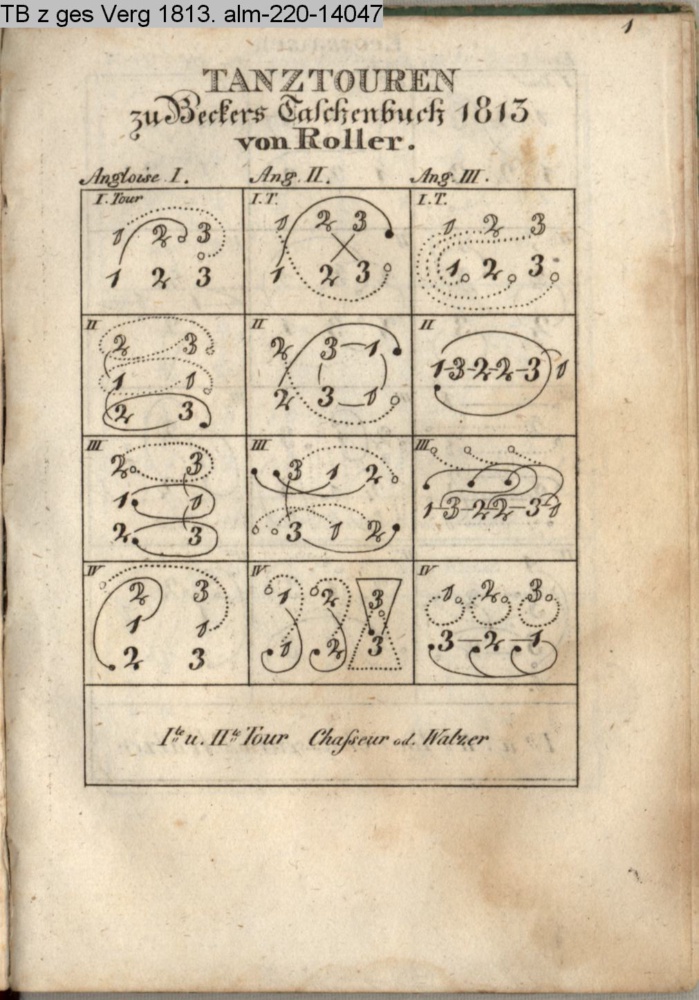 TB z ges Verg 1813. alm-220-14047
1
TANZTOUREN
zu Beckers Taschenbuch 1813
von Roller.
Angloise I. Ang. II. Ang. III.
I. Tour I. T. I. T.
1 2 3 1 2 3 1 2 3
1 2 3 1 2 3 1 2 3
II II II
2 3 2 3 1
1 1 1-3-2-2-3 1
2 3 2 3 1
III III III
2 3 3 1 2
1 1 1-3-2-2-3-1
2 3 3 1 2
IV IV IV
2 3 1 2 3 1 2 3
1 1
2 3 1 2 3 3-2-1
Ite u. IIte Tour Chaſseur od. Walzer